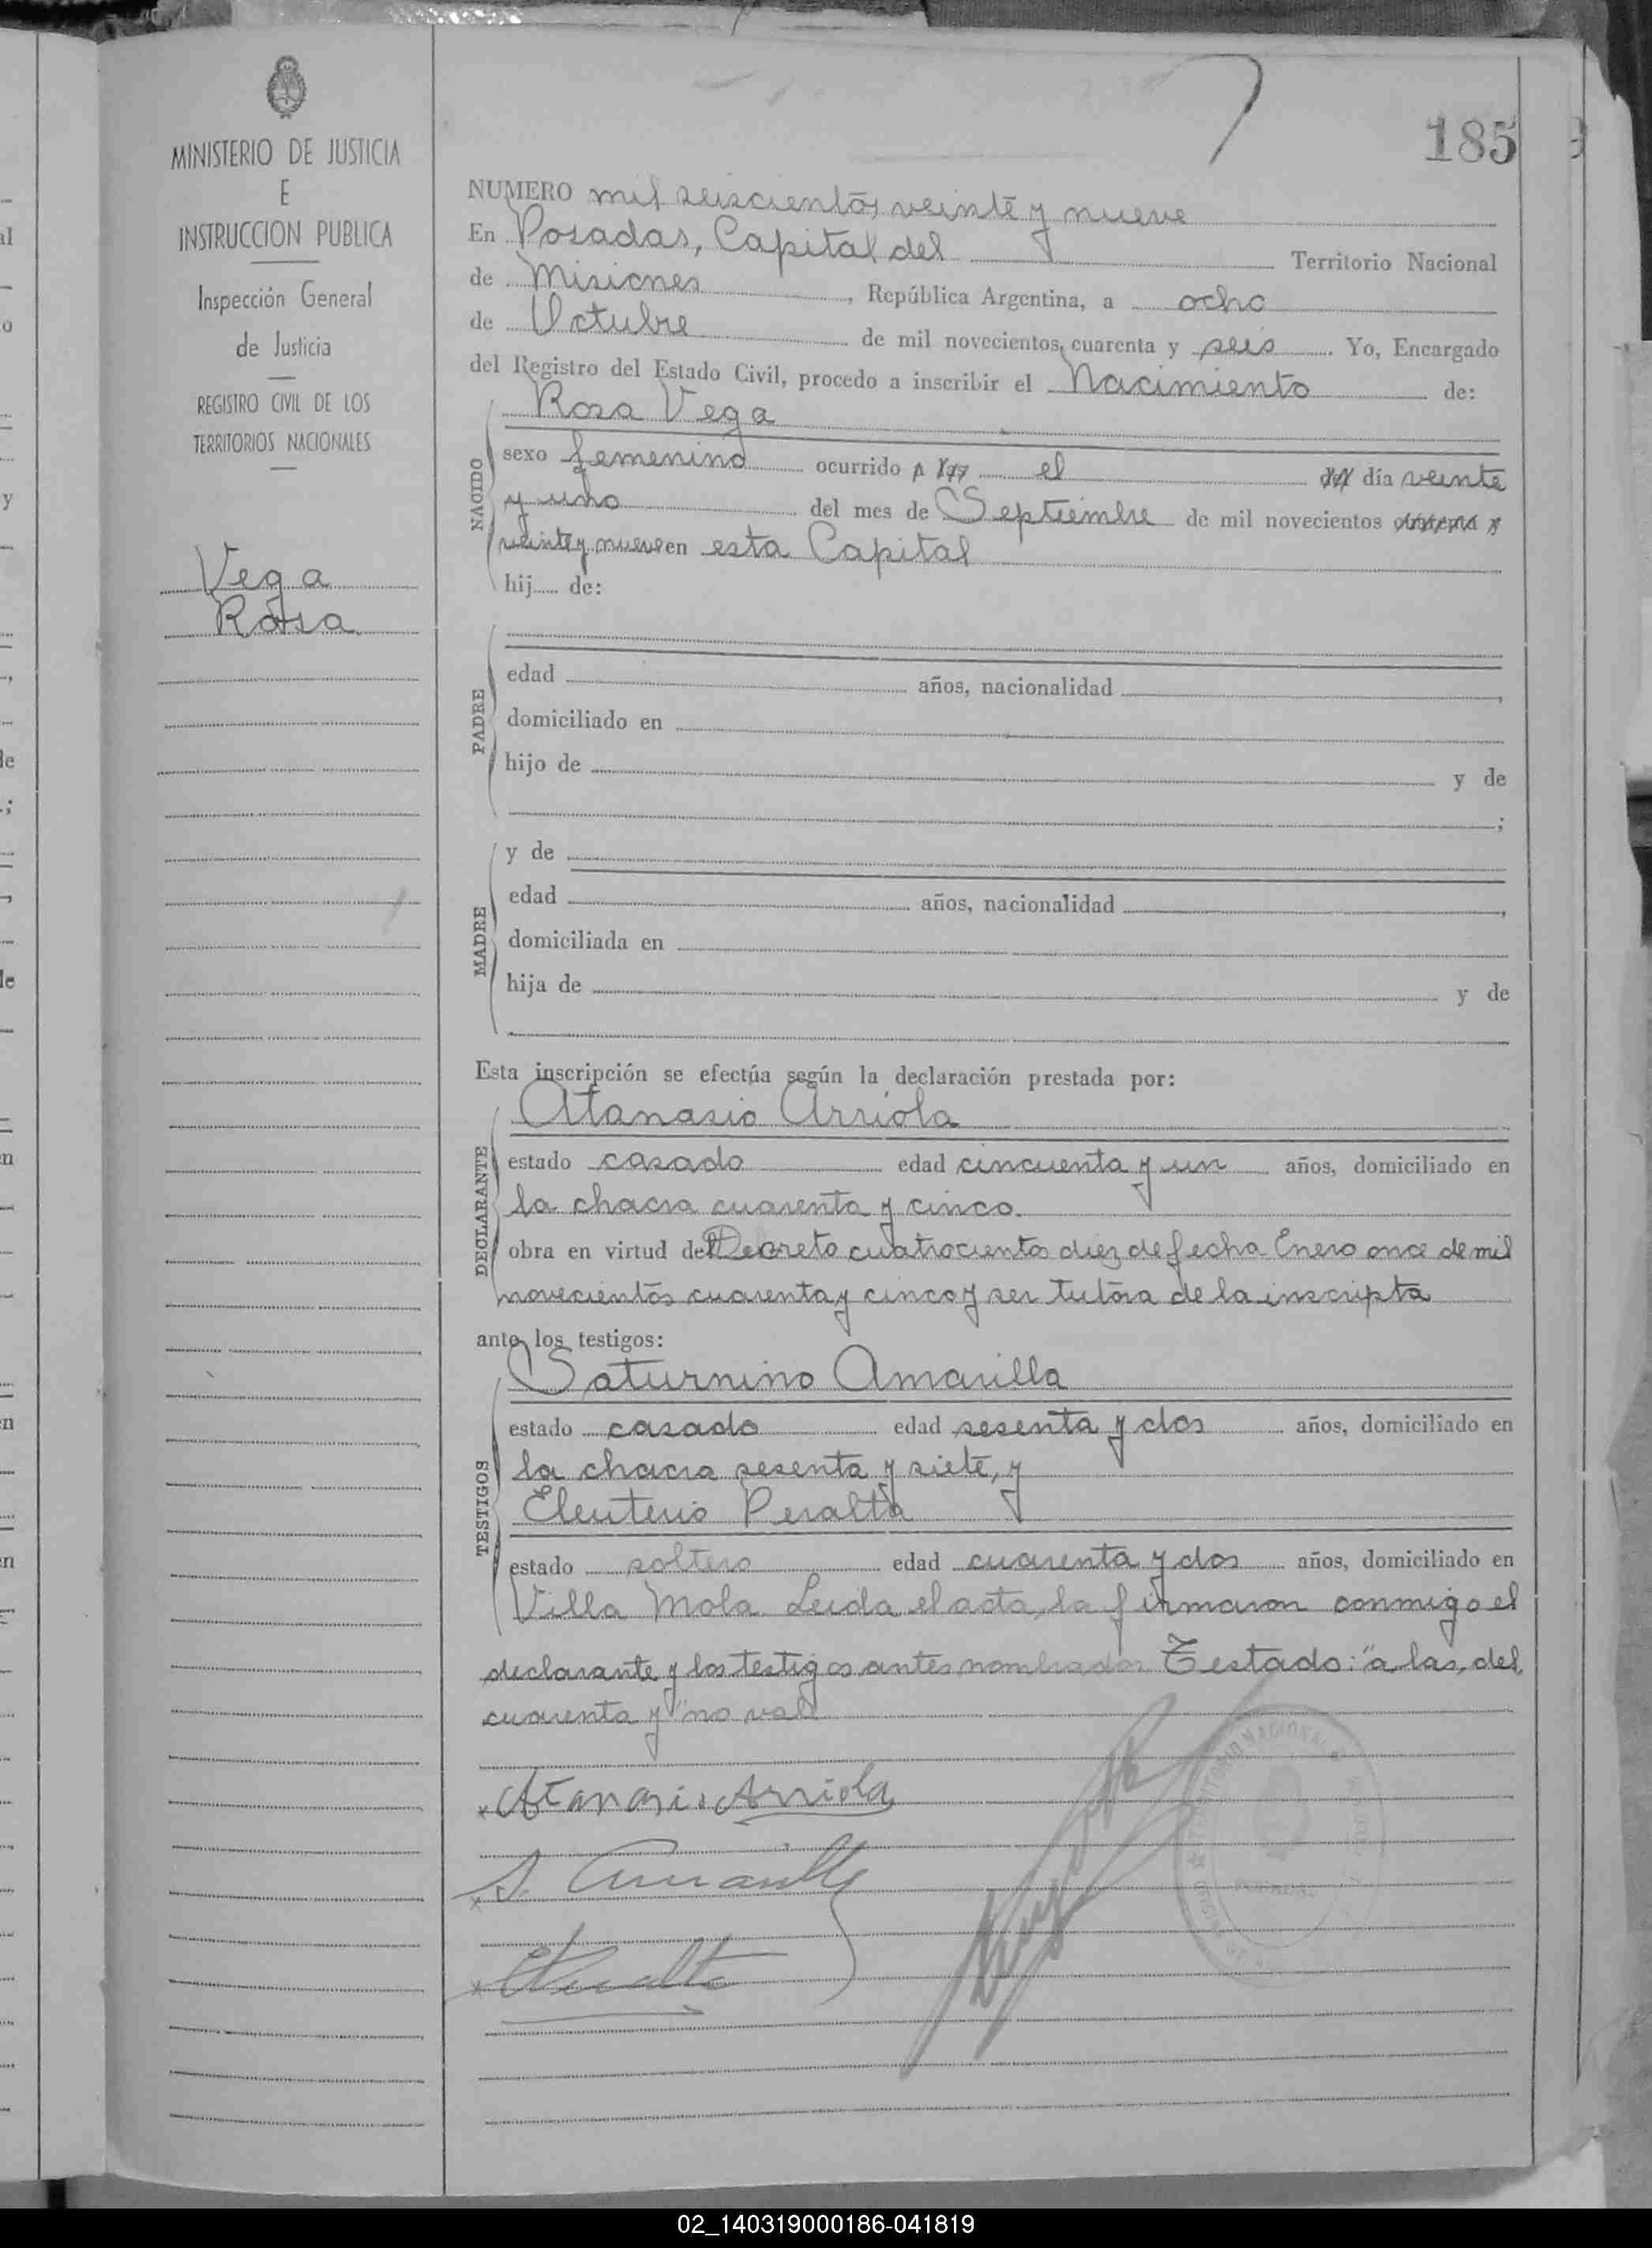 MINISTERIO DE JUSTICIA
E
INSTRUCCION PUBLICA
Inspección General
de Justicia
REGISTRO CIVIL DE LOS
TERRITORIOS NACIONALES
Vega
Rosa
185
NUMERO mil seiscientos veinte y nueve
En Posadas, Capital del Territorio Nacional
de Misiones, República Argentina, a ocho
de Octubre de mil novecientos cuarenta y seis. Yo, Encargado
del Registro del Estado Civil, procedo a inscribir el Nacimiento de:
NACIDO
Rosa Vega
sexo femenino ocurrido a las el del día veinte
y uno del mes de Septiembre de mil novecientos cuarenta y
veinte y nueve en esta Capital
hij de:
PADRE
edad años, nacionalidad ,
domiciliado en
hijo de y de
;
MADRE
y de
edad años, nacionalidad ,
domiciliada en
hija de y de
Esta inscripción se efectúa según la declaración prestada por:
DECLARANTE
Atanasio Arriola
estado casado edad cincuenta y un años, domiciliado en
la chacra cuarenta y cinco
obra en virtud del Decreto cuatrocientos diez de fecha Enero once de mil
novecientos cuarenta y cinco y ser tutora de la inscripta
ante los testigos:
TESTIGOS
Saturnino Amarilla
estado casado edad sesenta y dos años, domiciliado en
la chacra sesenta y siete, y
Eleuterio Peralta
estado soltero edad cuarenta y dos años, domiciliado en
Villa Mola. Leida el acta, la firmaron conmigo el
declarante y los testigos antes nombrados. Testado: "a las, del,
cuarenta y" no vale
Atanasio Arriola
S. Amarilla
E Peralta
02_140319000186-041819